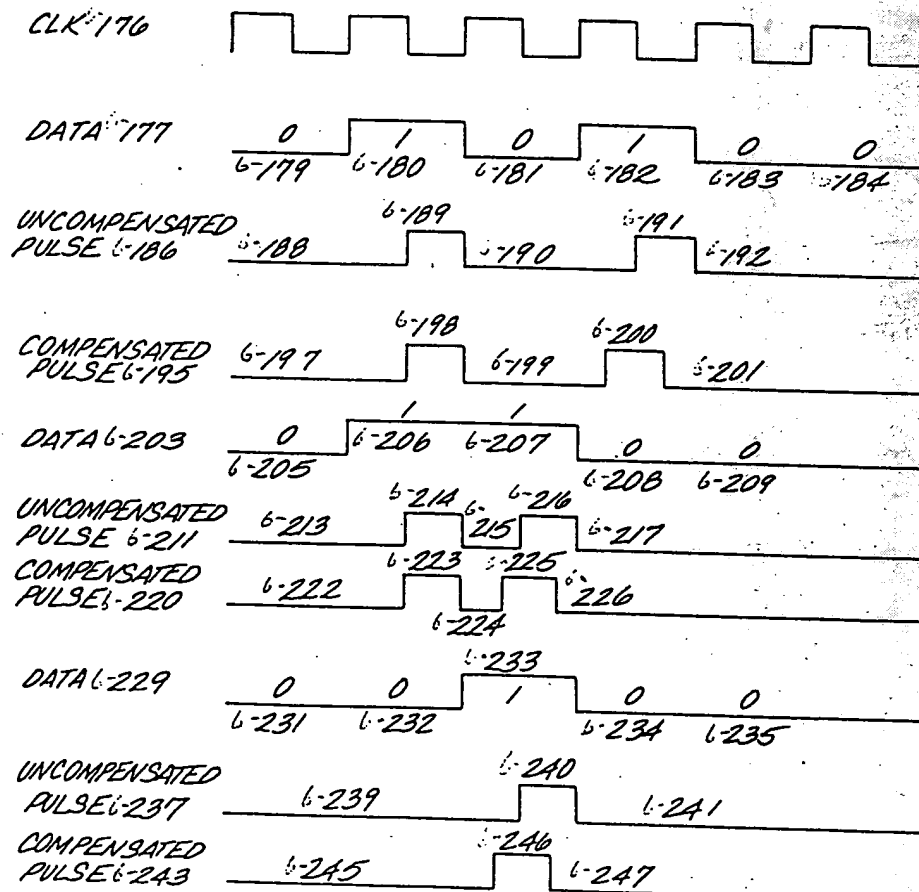 CLK 6-176
DATA 6-177
0 1 0 1 0 0
6-179 6-180 6-181 6-182 6-183 6-184
6-189 6-191
UNCOMPENSATED
PULSE 6-186
6-188 6-190 6-192
6-198 6-200
COMPENSATED
PULSE 6-195
6-197 6-199 6-201
DATA 6-203
0 1 1 0 0
6-205 6-206 6-207 6-208 6-209
UNCOMPENSATED
PULSE 6-211
6-213 6-214 6-215 6-216 6-217
COMPENSATED
PULSE 6-220
6-222 6-223 6-224 6-225 6-226
6-233
DATA 6-229
0 0 1 0 0
6-231 6-232 6-234 6-235
6-240
UNCOMPENSATED
PULSE 6-237
6-239 6-241
6-246
COMPENSATED
PULSE 6-243
6-245 6-247